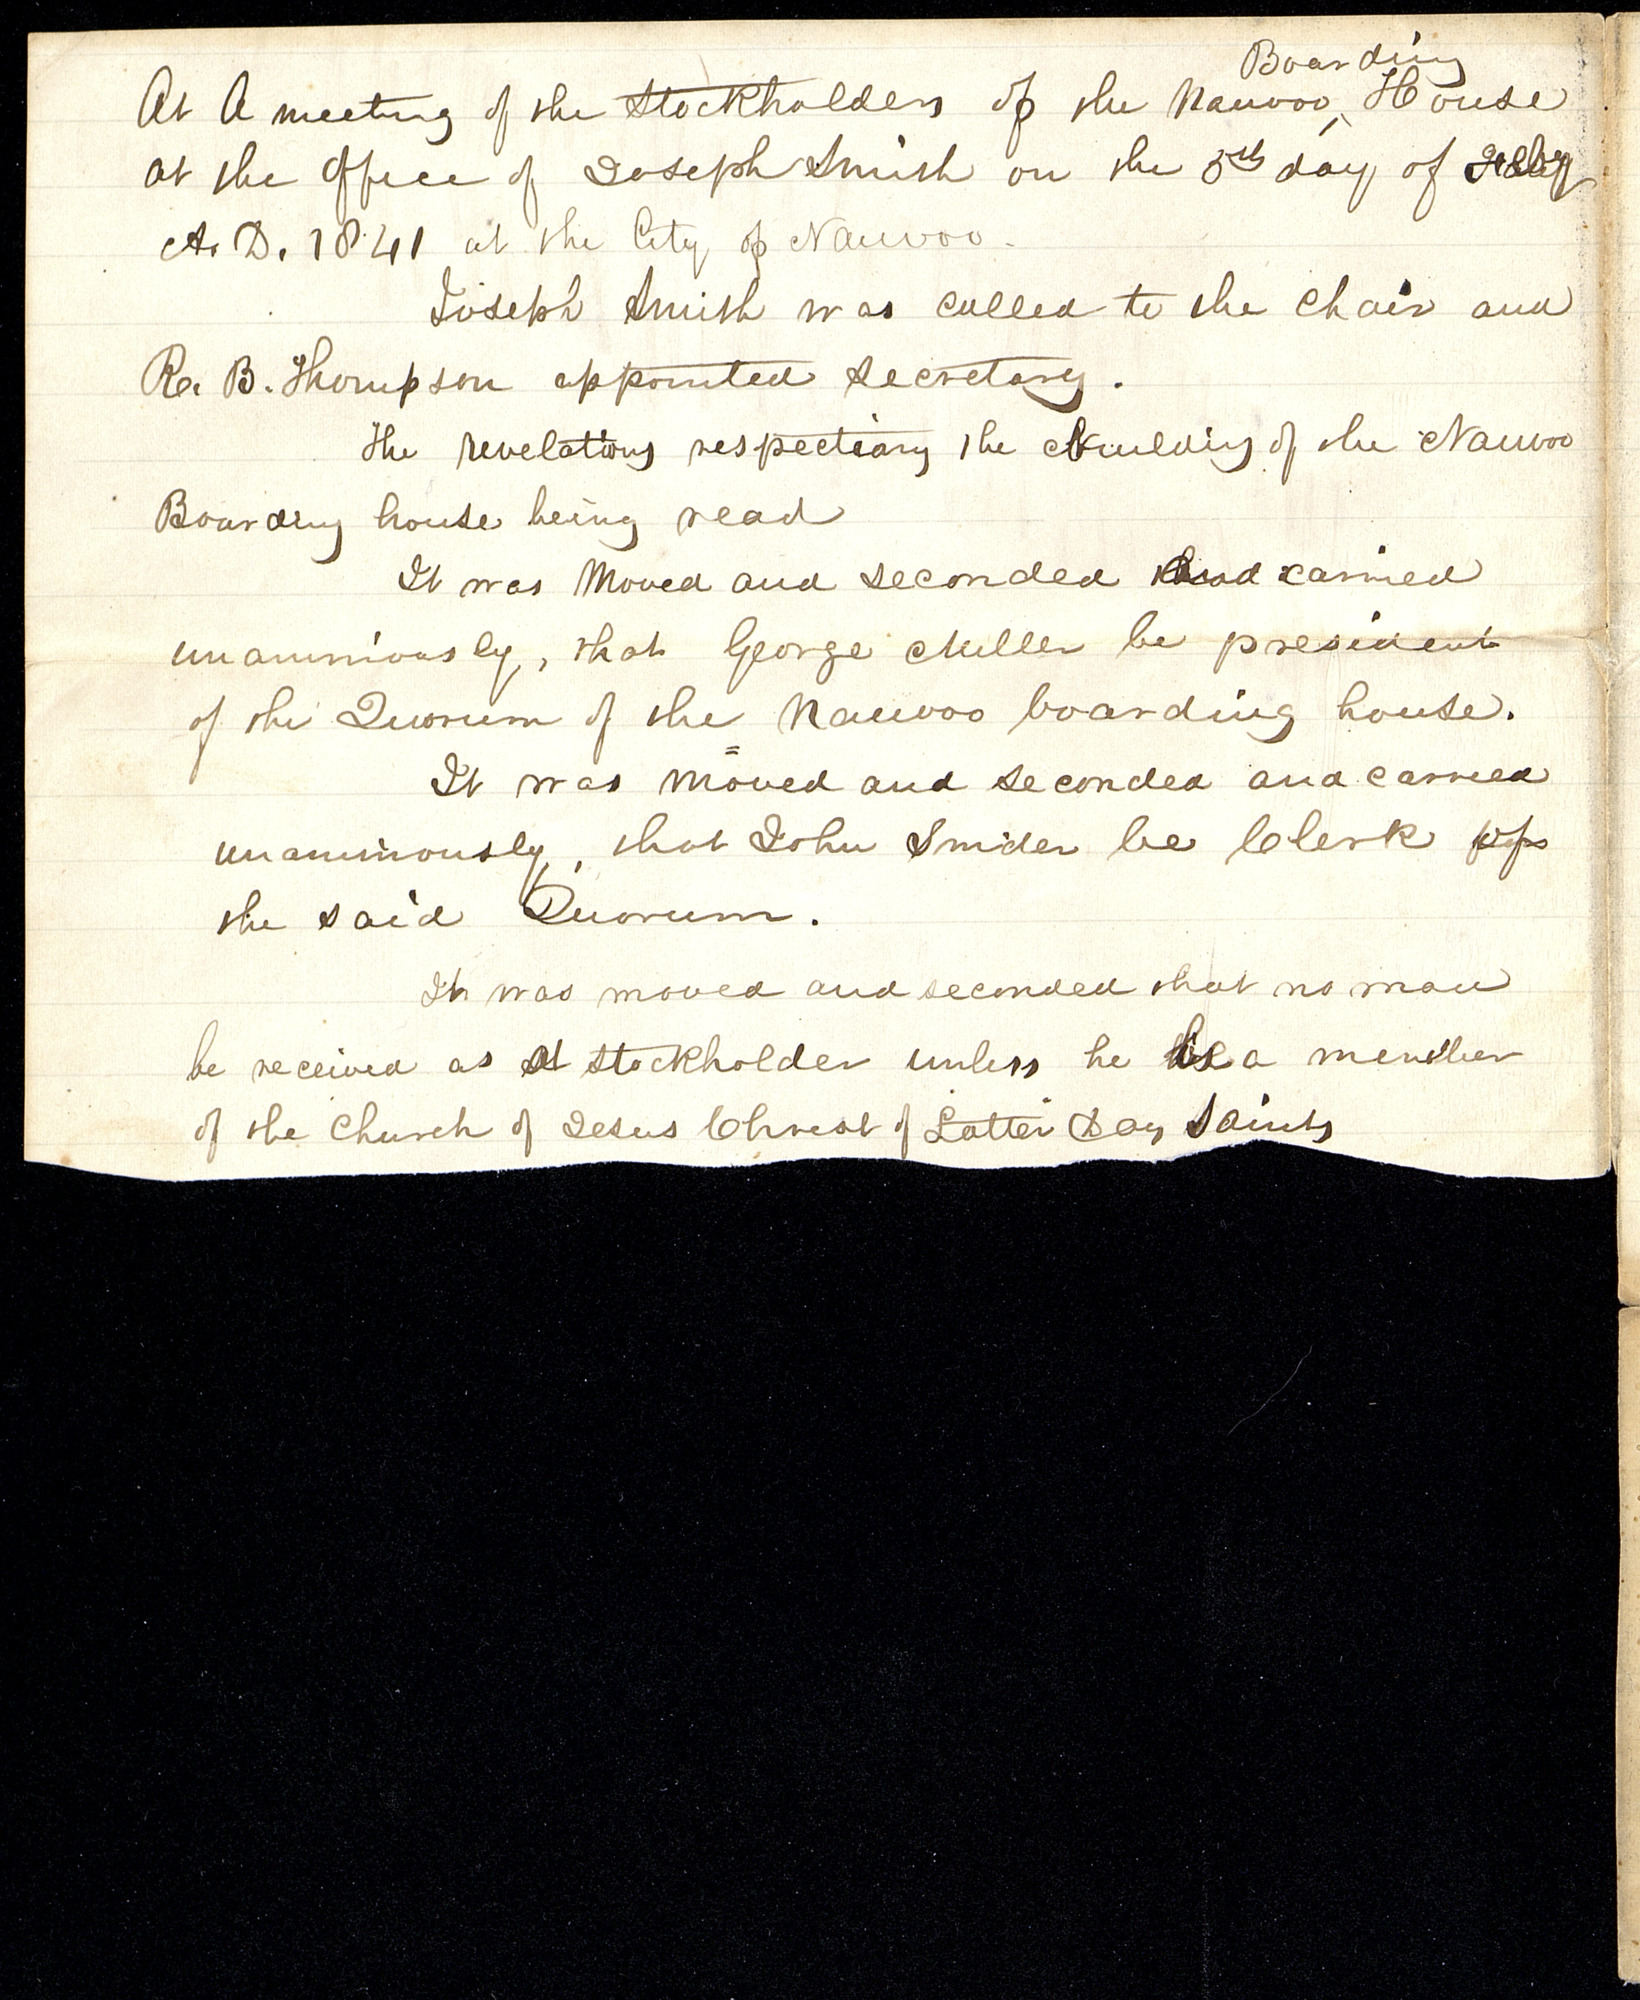 At A meeting of the Stockholders of the Nauvoo ^Boarding House
at the Office of Joseph Smith on the 5th day of Feby
A. D. 1841 at the City of Nauvoo.
Joseph Smith was called to the Chair and
R. B. Thompson appointed Secretary.
The revelations respecting the building of the Nauvoo
Boarding house being read
It was Moved and seconded and carried
unanimiously, that George Miller be president
of the Quorum of the Nauvoo boarding house.
It was Moved and seconded and carried
unanimously, that John Snider be Clerk of
the said Quorum.
It was moved and seconded that no man
be received as a Stockholder unless he be a member
of the Church of Jesus Christ of Latter Day Saints